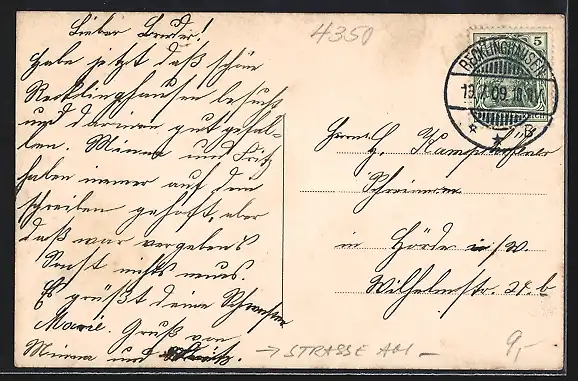 Lieber Bruder!
Habe jetzt daß schöne
Recklinghausen besucht
und darinnen gut gefal-
len. Minna und Fritz
haben immer auf dein
schreiben gehofft, aber
daß war vergebens
Sonst nichts neues.
Es grüßt deine Schwester
Marie. Gruß von
Minna und
4350
5
RECKLINGHAUSEN
09
B
Herrn
Schreiner
in Hörde i/W.
Wilhelmstr. 24. b
→ STRASSE AM –
9,-